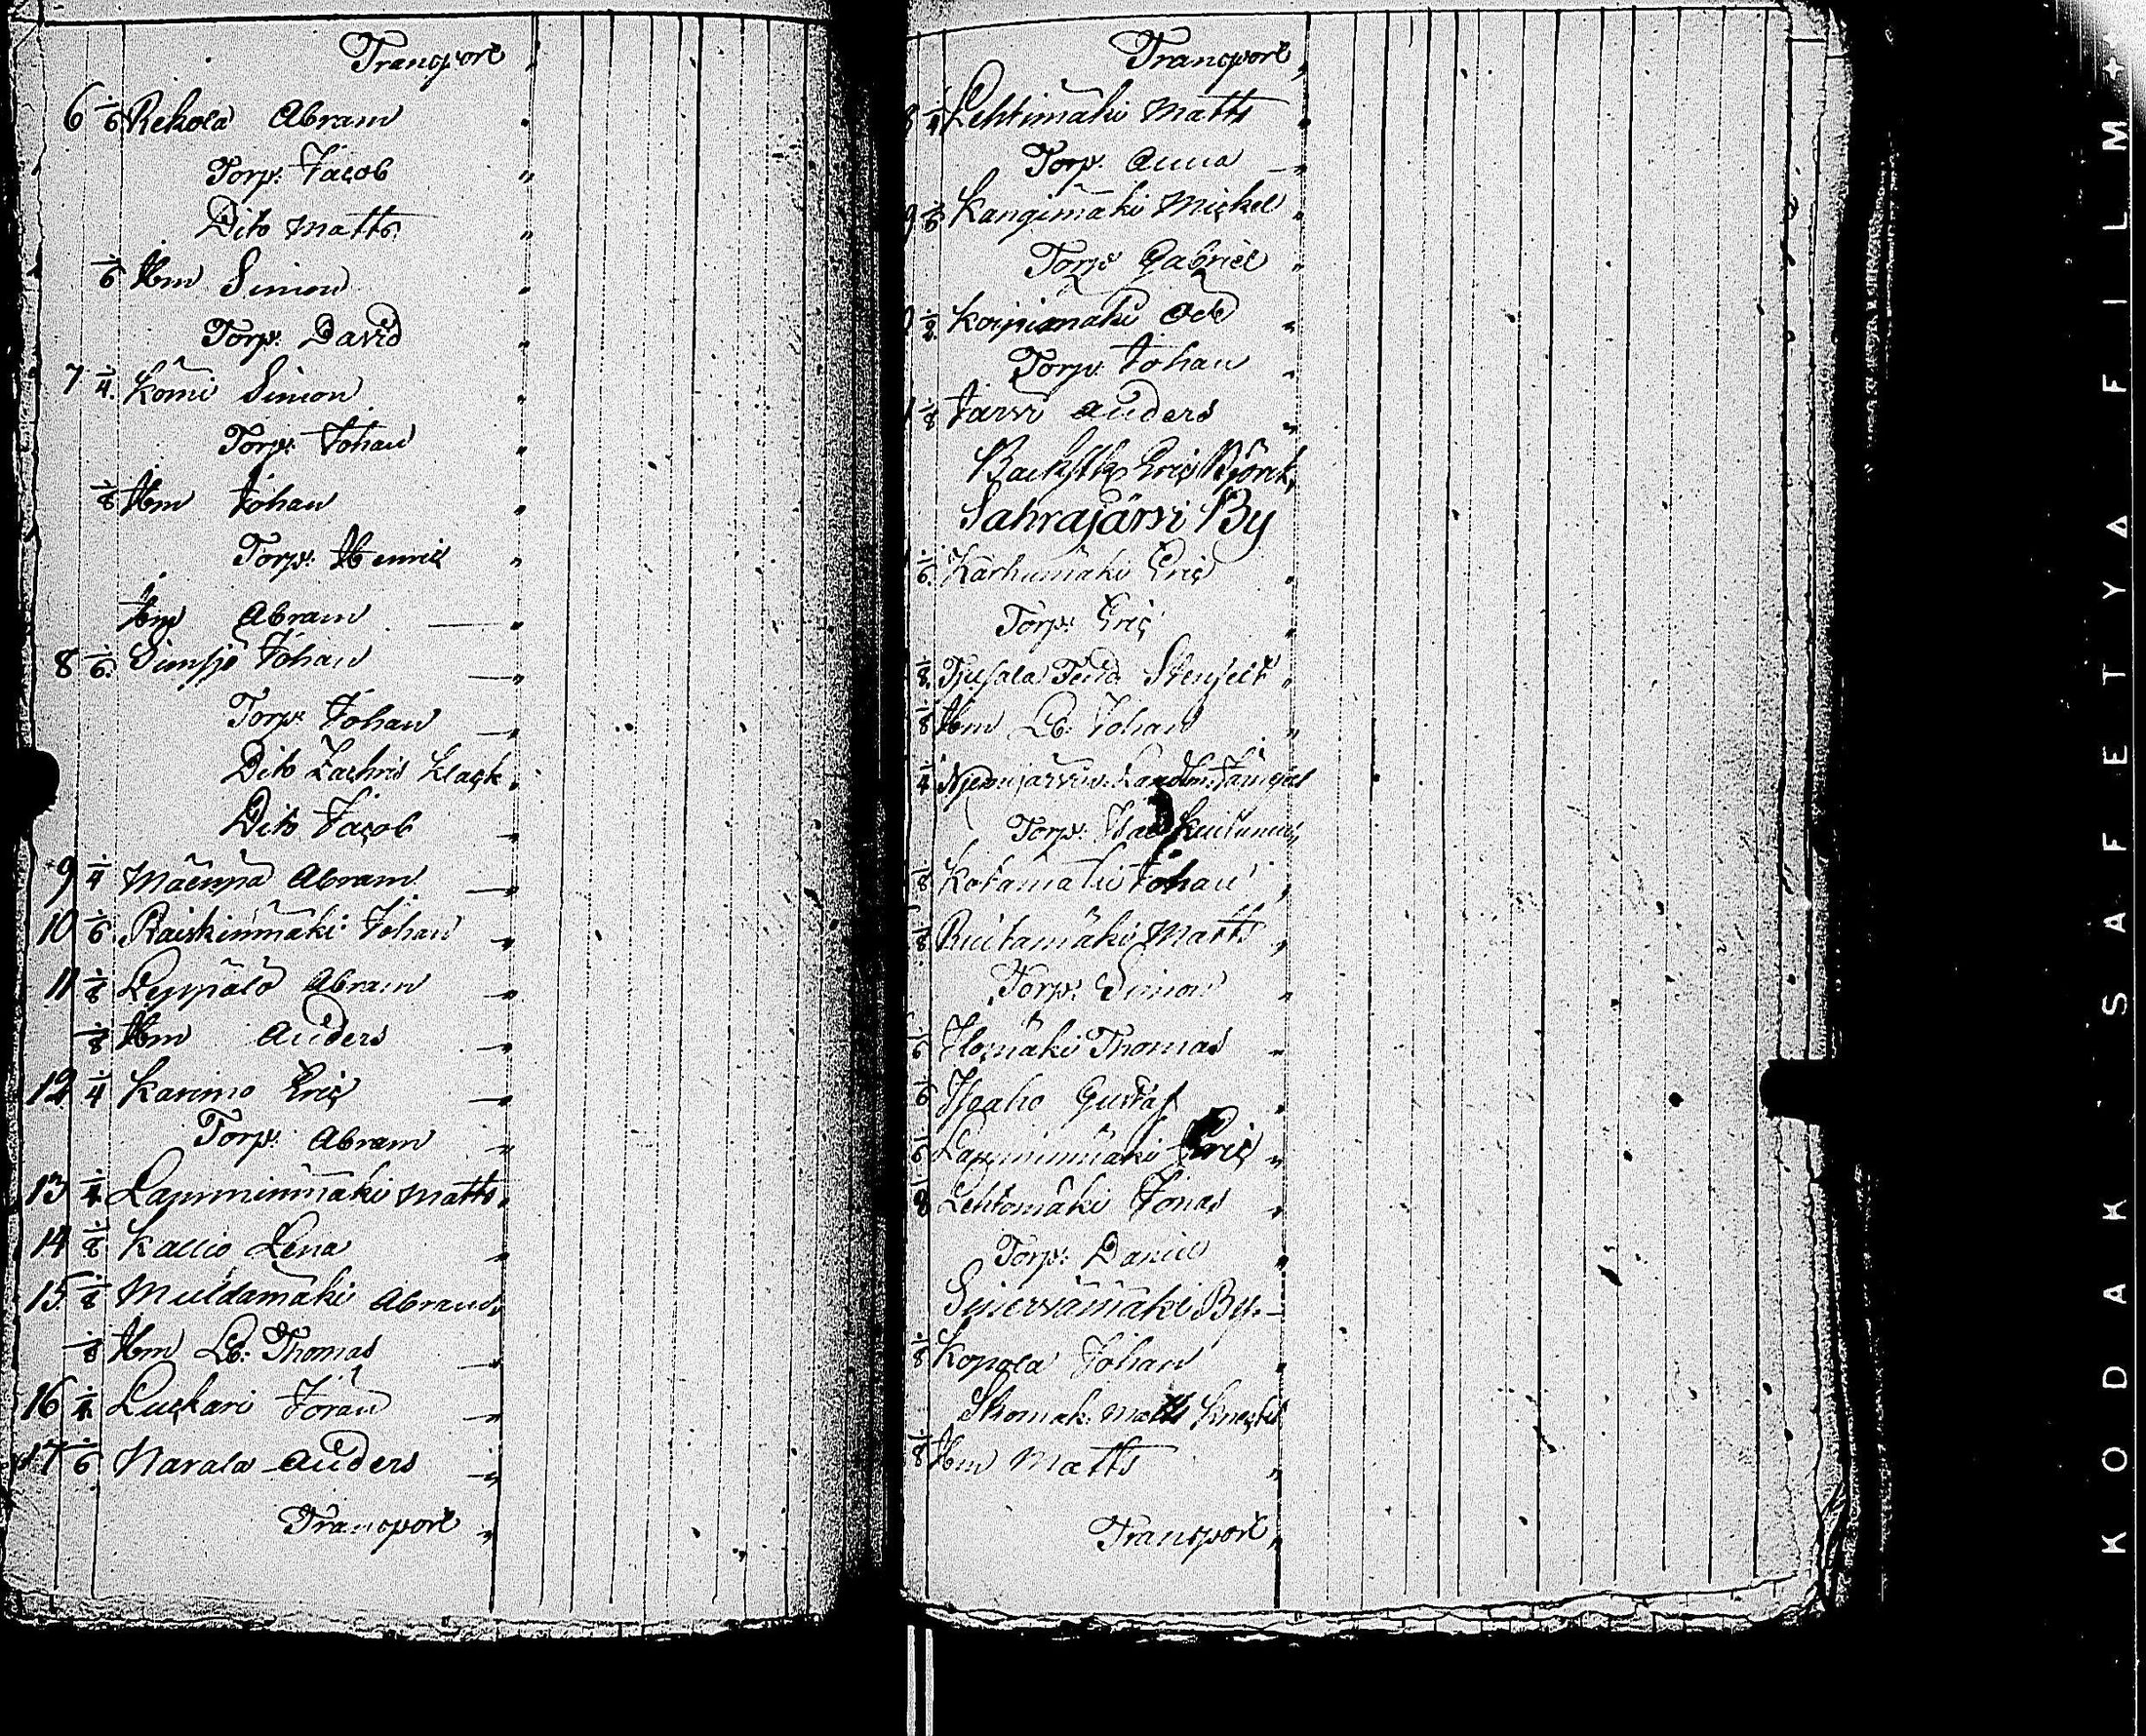 Transport
6 1/6 Rekola Abram
Torp: Jacob
Dito Matts
1/6 Hm Simon
Torp: David
7 1/4 Kömi Simon
Torp: Johan
1/8 Hm Johan
Torp: Henric
Hm Abram
8 1/6 Johan
Torp: Johan
Dito Zachris Klack
Dito Jacob
9 1/4 Mäenpä Abram
10 1/6 Raiskinmäki Johan
11 1/8 Leppälä Abram
1/8 Hm Anders
12 1/4 Karimo Eric
Torp: Abram
13 1/4 Lamminmäki Matts
14 1/8 Kallio Lena
15 1/8 Muldamäki Abram
1/8 Hm Lb: Thomas
16 1/4 Luckari Jöran
17 1/6 Narala Anders
Transport
Transport
1/4 Lehtimäki Matts
Torp: Anna
Kangimäki Mickel
Torp: Gabriel
1/2 Koipimäki
Torp: Johan
1/8 Järvi Anders
Eric Björk
Sahrajärvi By
1/6 Karhumäki Eric
Torp: Eric
1/8
1/8 Hm Lb: Johan
1/4
Torp: Isac
1/8 Kotamäki Johan
1/8 Ruitamäki Matts
Torp: Simon
1/6 Ilomäki Thomas
1/6 Isoaho Gustaf
1/6 Lamminmäki Eric
1/8 Lehtomäki Jonas
Torp: Daniel
By
1/8 Kopola Johan
Skomak: Matts
1/8 Hm Matts
Transport
KODAK SAFETY FILM